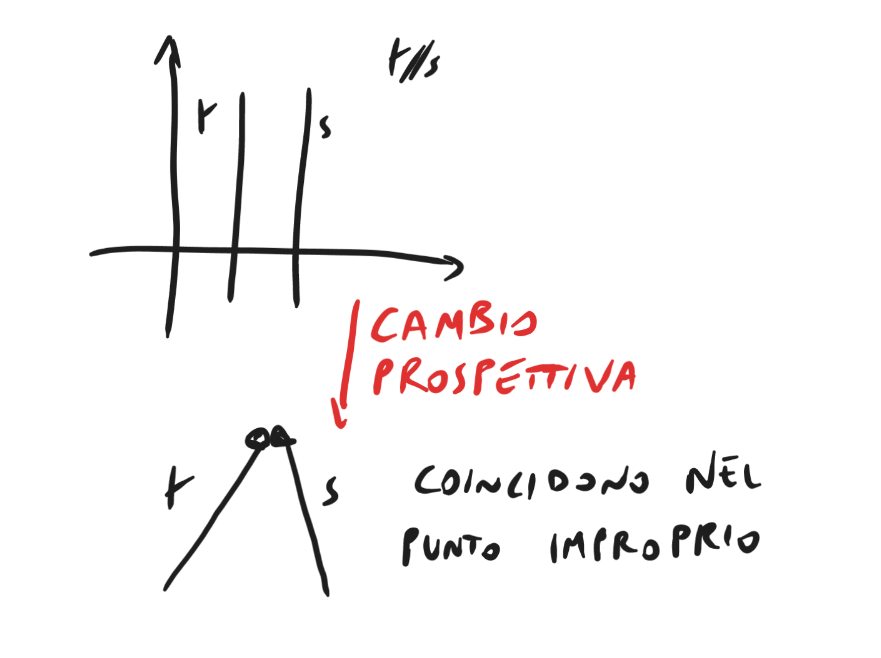 r//s
r
s
CAMBIO
PROSPETTIVA
r
s
COINCIDONO NEL
PUNTO IMPROPRIO